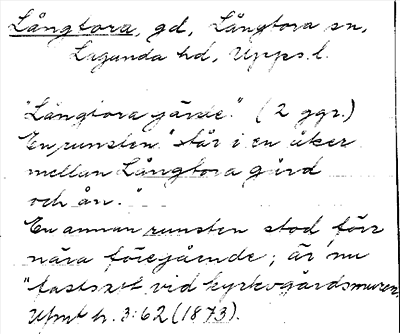 Långtora, gd, Långtora sn,
Lagunda hd, Upps. l.
"Långtora gärde." (2 ggr.)
En runsten "står i en åker
mellan Långtora gård
och ån."
En annan runsten stod förr
nära föregående; är nu
"fastsatt vid kyrkogårdsmuren.
Ufmt h. 3:62 (1873).